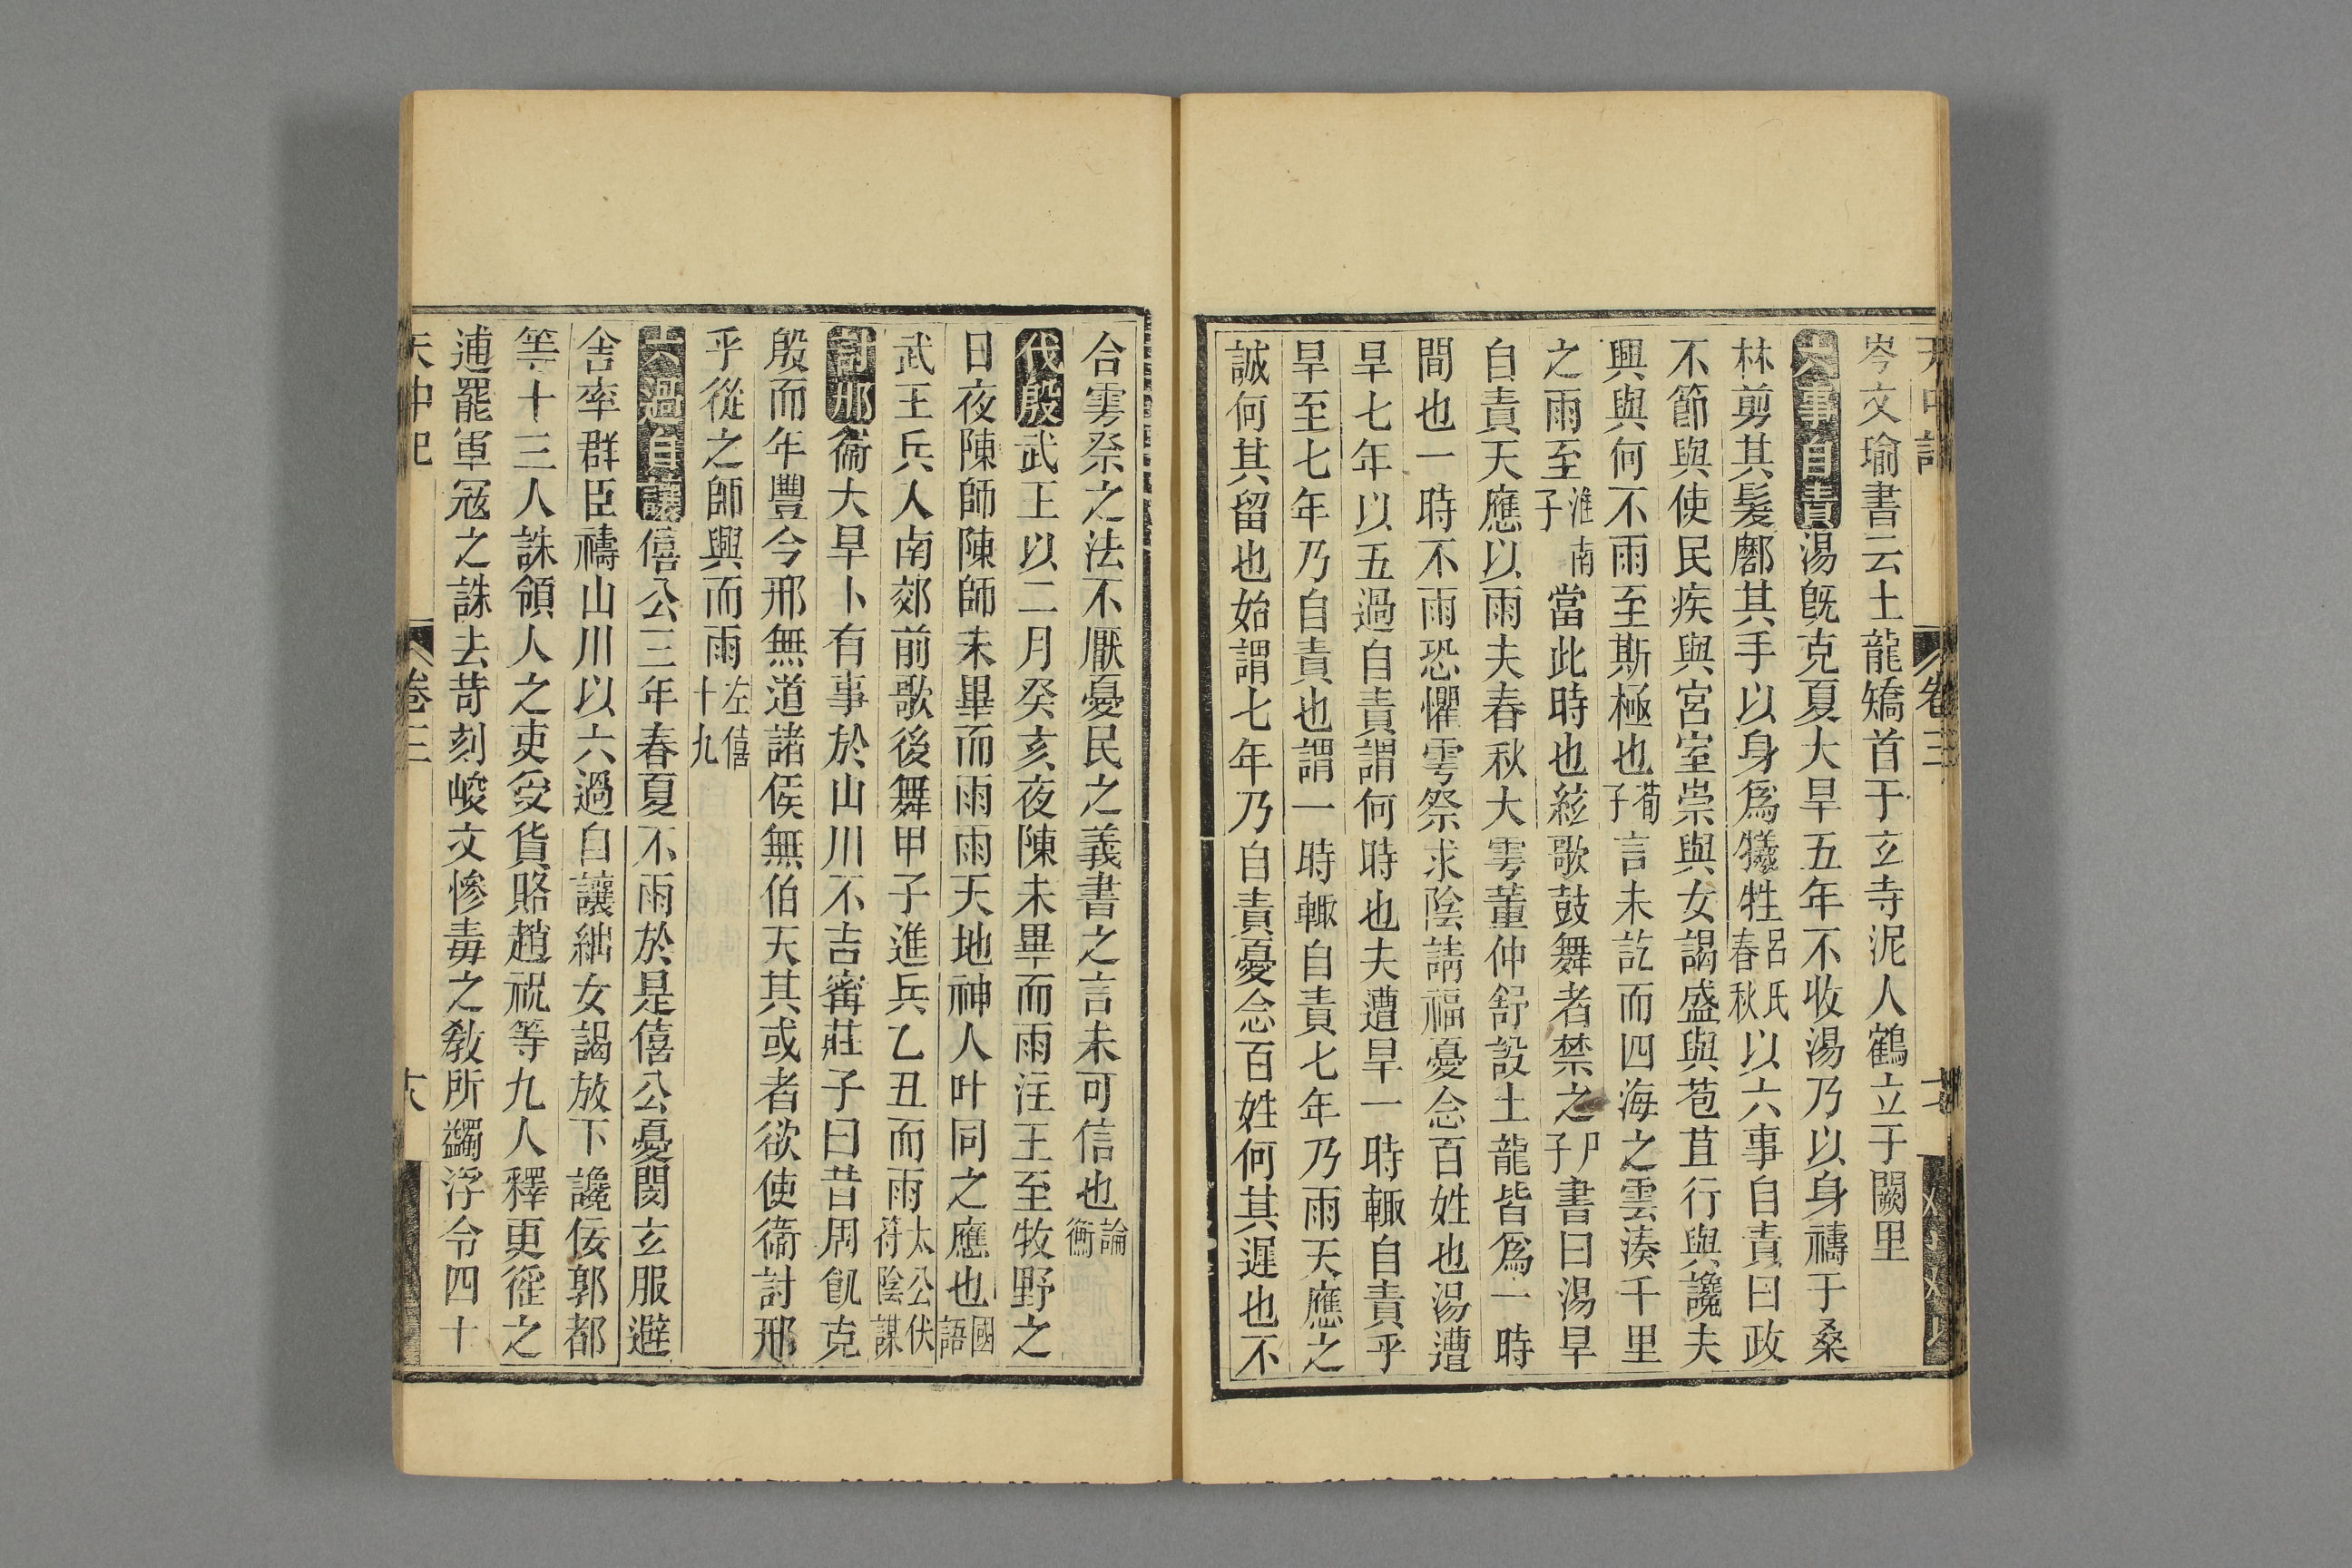 天中記 卷三
岑文瑜書云土龍矯首于玄寺泥人鶴立于闕里
六事自責湯旣克夏大旱五年不收湯乃以身禱于桑
林剪其髮𠪱其手以身爲犧牲呂氏春秋以六事自責曰政
不節與使民疾與宮室崇與女謁盛與苞苴行與讒夫
興與何不雨至斯極也荀子言未訖而四海之雲湊千里
之雨至淮南子當此時也絃歌鼓舞者禁之尸子書曰湯旱
自責天應以雨夫春秋大雩董仲舒設土龍皆爲一時
間也一時不雨恐懼雩祭求陰請福憂念百姓也湯遭
旱七年以五過自責謂何時也夫遭旱一時輙自責乎
旱至七年乃自責也謂一時輙自責七年乃雨天應之
誠何其留也始謂七年乃自責憂念百姓何其遲也不
合雩祭之法不厭憂民之義書之言未可信也論衡
伐殷武王以二月癸亥夜陳未畢而雨注王至牧野之
日夜陳師陳師未畢而雨雨天地神人叶同之應也國語
武王兵入南郊前歌後舞甲子進兵乙丑而雨太公伏符陰謀
討邢衞大旱卜有事於山川不吉甯莊子曰昔周飢克
殷而年豐今邢無道諸侯無伯天其或者欲使衞討邢
乎從之師興而雨左僖十九
六過自讓僖公三年春夏不雨於是僖公憂閔玄服避
舍率群臣禱山川以六過自讓絀女謁放下讒佞郭都
等十三人誅領人之吏受貨賂趙祝等九人釋更徭之
逋罷軍冦之誅去苛刻峻文慘毒之教所蠲浮令四十
天中記 卷三 十八